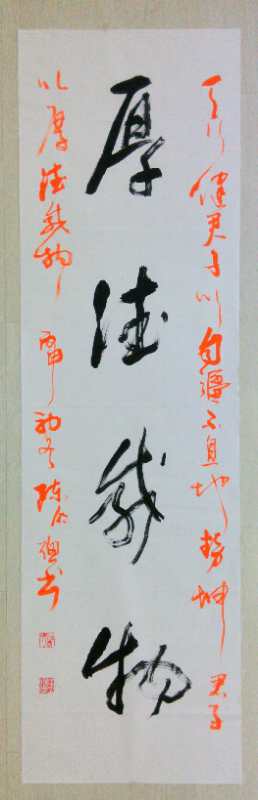 天行健君子以自彊不息地勢坤君子
厚德載物
以厚德載物 初冬 書